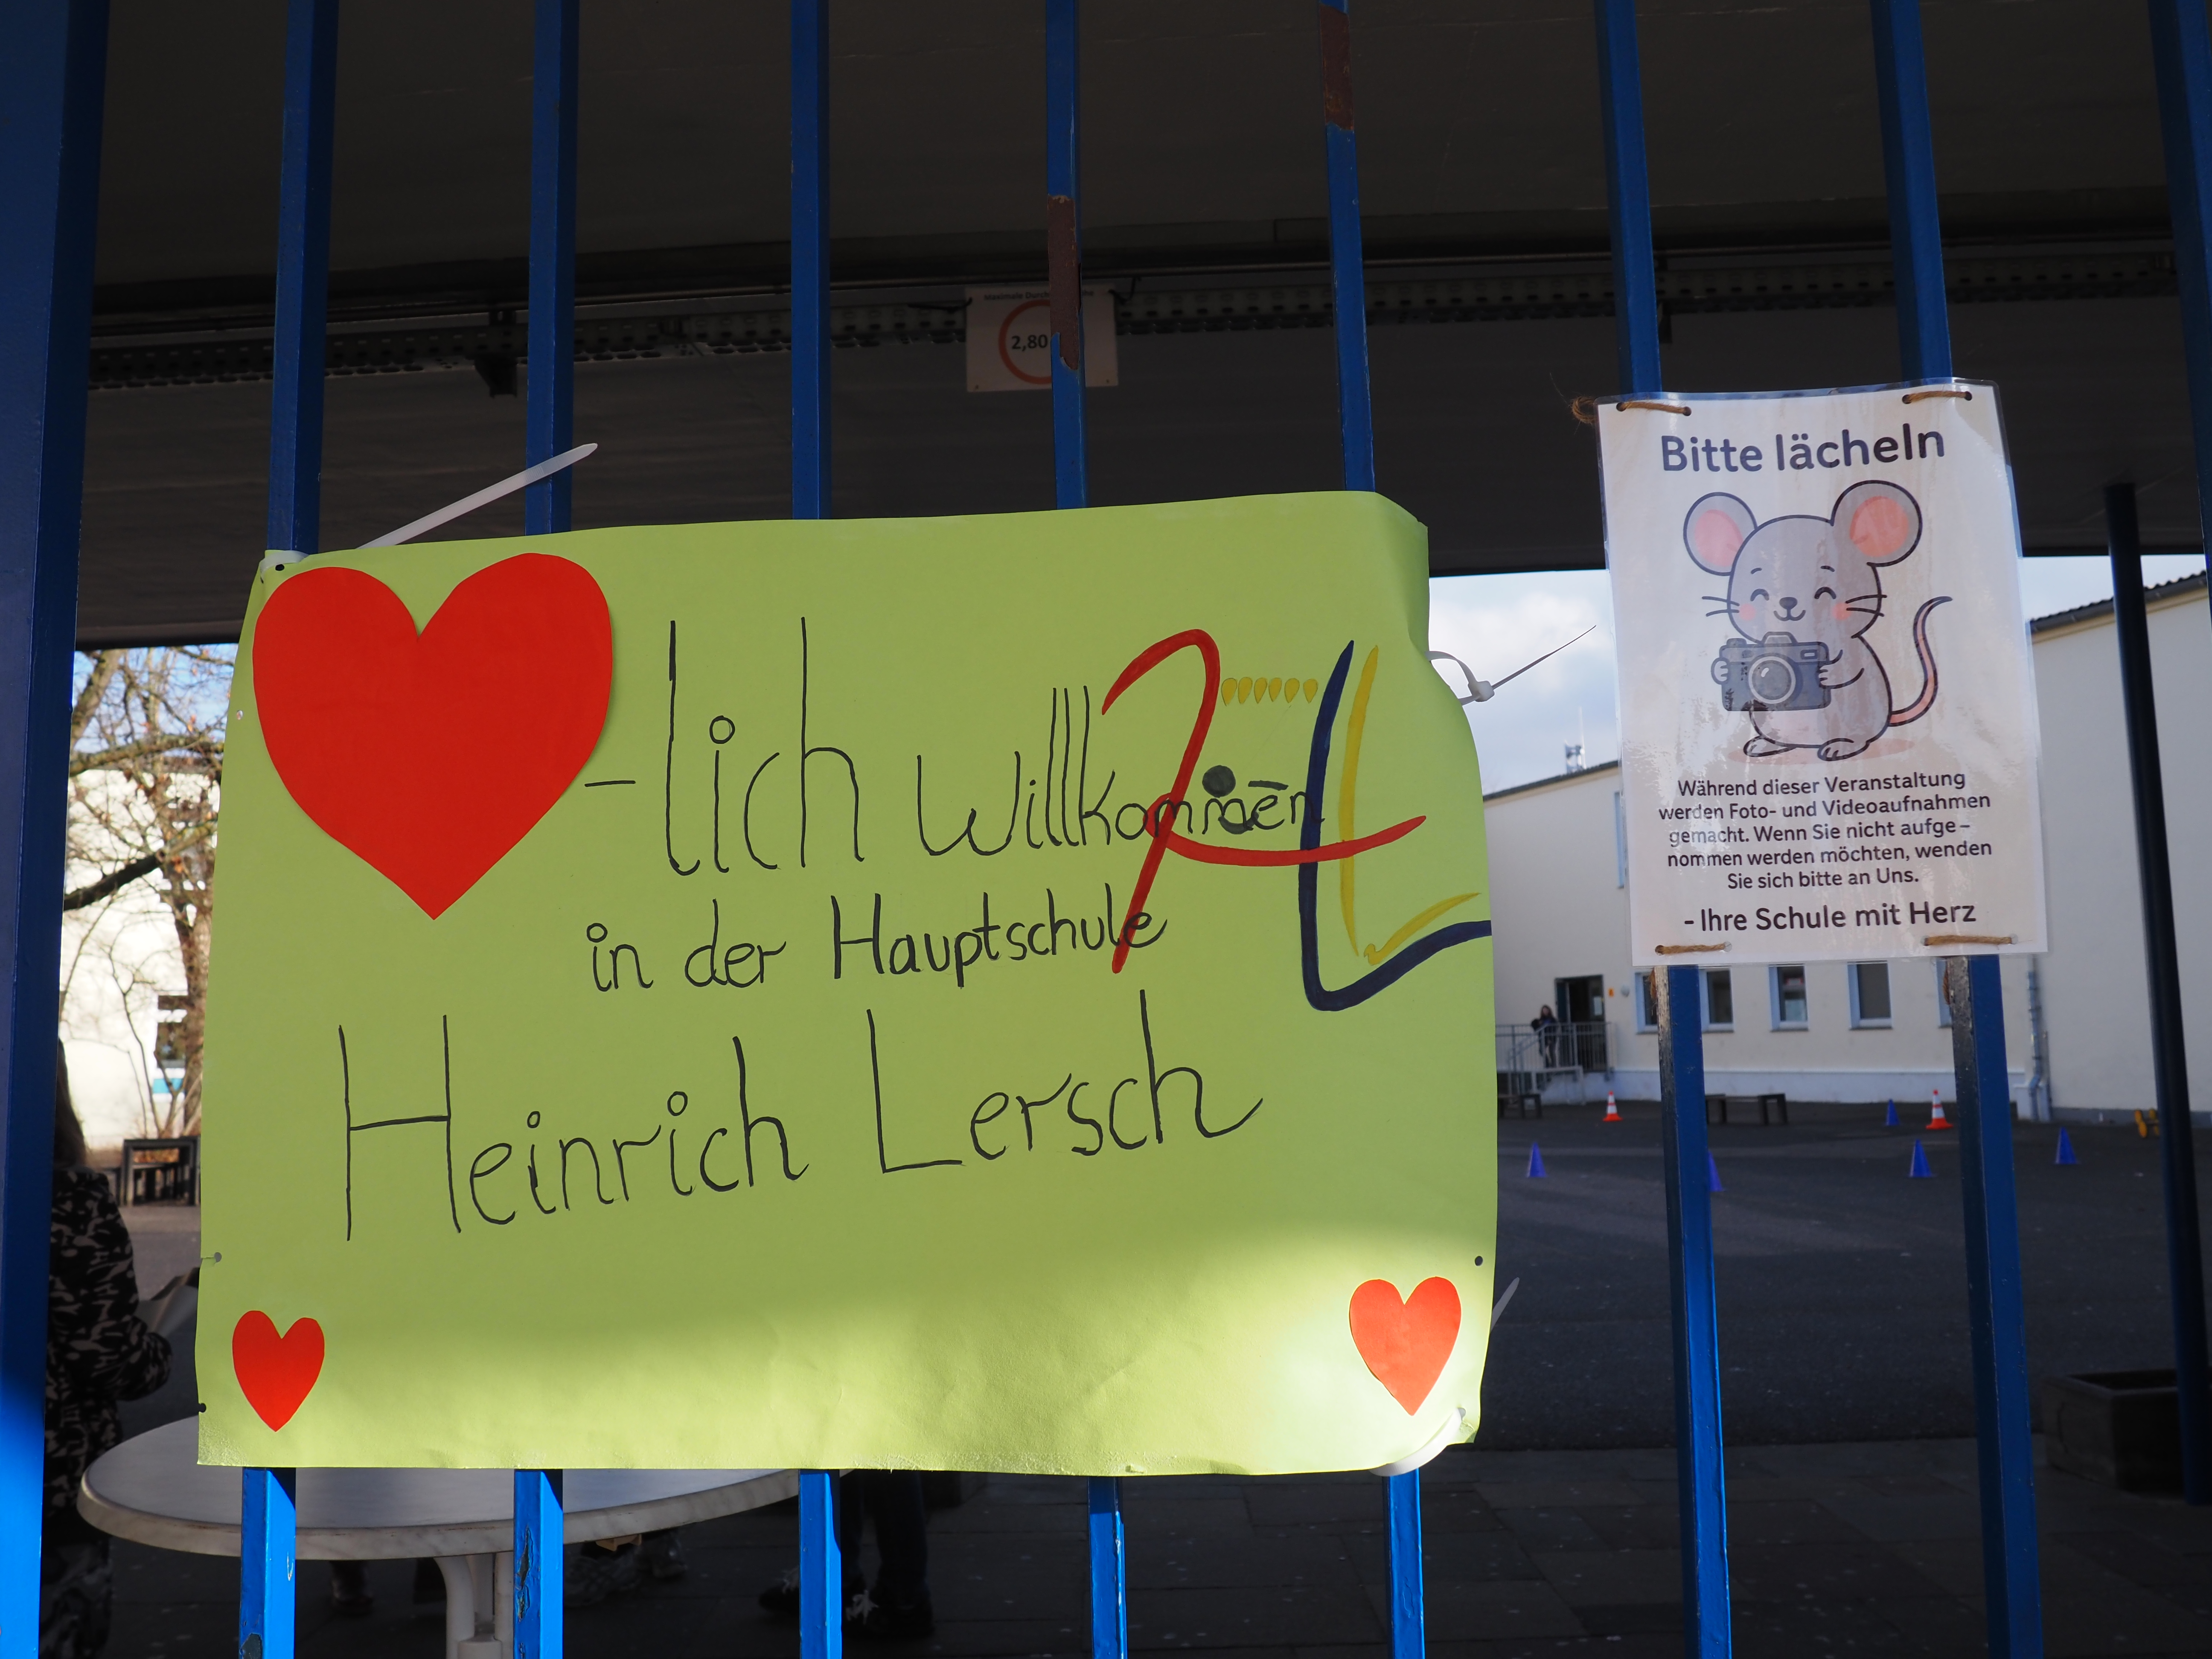 Maximale Durch
2,80
-lich Willkommen
in der Hauptschule
Heinrich Lersch
Bitte lächeln
Während dieser Veranstaltung
werden Foto- und Videoaufnahmen
gemacht. Wenn Sie nicht aufge-
nommen werden möchten, wenden
Sie sich bitte an Uns.
- Ihre Schule mit Herz